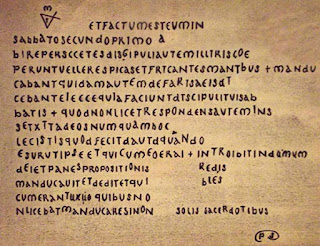 m
ETFACTUMESTEUMIN
SABBATOSECUNDOPRIMO à
BIREPERSCCETESDISGIPULIAUTEMILLITRISCOE
PERUNTUELLERESPICASETFRICANTESMANTBUS + MANDU
CABANTQUIDAMAUTEMDEFARISAEISDT
CEBANTELECCEQUIAFACIUNTDTSCIPULITUISAB
BATIS + QUODNONLICETRESPONDENSAUTEMINS
SETXTTADEOSNUMQUAMHOC
LECISTISQUODFECITDAUTDQUANDO
ESURUTIPSEETQUICUMEOERAI + INTROIBITINDUMUM
DEIETPANESPROPOSITIONIS REDIS
MANDUCAUITETDEDITETQUI BLES
CUMERANTUXUO QUIBUSNO
NLICEBATMANDUCARESINON SOLIS SACERDOTIBUS
PD